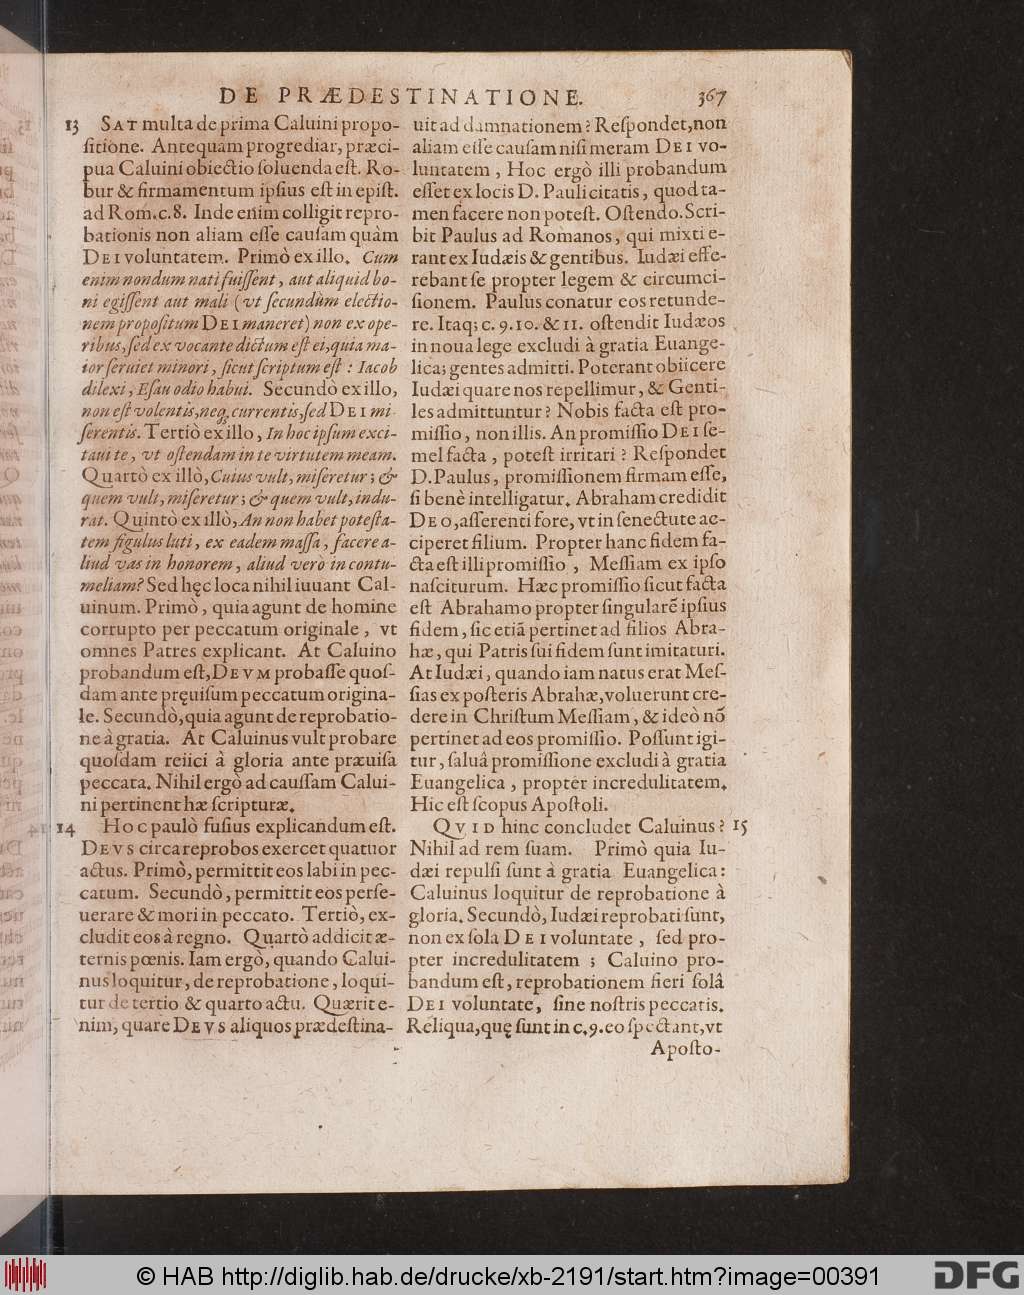 DE PRÆDESTINATIONE. 367
13 SAT multa de prima Caluini propo-
ſitione. Antequam progrediar, præci-
pua Caluini obiectio ſoluenda eſt. Ro-
bur & firmamentum ipſius eſt in epiſt.
ad Rom. c. 8. Inde enim colligit repro-
bationis non aliam eſſe cauſam quàm
DEI voluntatem. Primò ex illo. Cum
enim nondum nati fuiſſent, aut aliquid bo-
ni egiſſent aut mali (vt ſecundùm electio-
nem propoſitum DEI maneret) non ex ope-
ribus, ſed ex vocante dictum eſt ei, quia ma-
ior ſeruiet minori, ſicut ſcriptum eſt: Iacob
dilexi, Eſau odio habui. Secundò ex illo,
non eſt volentis, neq; currentis, ſed DEI mi-
ſerentis. Tertiò ex illo, In hoc ipſum exci-
taui te, vt oſtendam in te virtutem meam.
Quartò ex illò, Cuius vult, miſeretur; &
quem vult, miſeretur; & quem vult, indu-
rat. Quintò ex illò, An non habet poteſta-
tem figulus luti, ex eadem maſſa, facere a-
liud vas in honorem, aliud verò in contu-
meliam? Sed hęc loca nihil iuuant Cal-
uinum. Primò, quia agunt de homine
corrupto per peccatum originale, vt
omnes Patres explicant. At Caluino
probandum eſt, DEVM probaſſe quoſ-
dam ante pręuiſum peccatum origina-
le. Secundò, quia agunt de reprobatio-
ne à gratia. At Caluinus vult probare
quoſdam reiici à gloria ante præuiſa
peccata. Nihil ergò ad cauſſam Calui-
ni pertinent hæ ſcripturæ.
14 HOC paulò fuſius explicandum eſt.
DEVS circa reprobos exercet quatuor
actus. Primò, permittit eos labi in pec-
catum. Secundò, permittit eos perſe-
uerare & mori in peccato. Tertiò, ex-
cludit eos à regno. Quartò addicit æ-
ternis pœnis. Iam ergò, quando Calui-
nus loquitur, de reprobatione, loqui-
tur de tertio & quarto actu. Quærit e-
nim, quare DEVS aliquos prædeſtina-
uit ad damnationem? Reſpondet, non
aliam eſſe cauſam niſi meram DEI vo-
luntatem, Hoc ergò illi probandum
eſſet ex locis D. Pauli citatis, quod ta-
men facere non poteſt. Oſtendo. Scri-
bit Paulus ad Romanos, qui mixti e-
rant ex Iudæis & gentibus. Iudæi effe-
rebant ſe propter legem & circumci-
ſionem. Paulus conatur eos retunde-
re. Itaq; c. 9. 10. & 11. oſtendit Iudæos
in noua lege excludi à gratia Euange-
lica; gentes admitti. Poterant obiicere
Iudæi quare nos repellimur, & Genti-
les admittuntur? Nobis facta eſt pro-
miſſio, non illis. An promiſſio DEI ſe-
mel facta, poteſt irritari? Reſpondet
D. Paulus, promiſſionem firmam eſſe,
ſi benè intelligatur. Abraham credidit
DEO, aſſerenti fore, vt in ſenectute ac-
ciperet filium. Propter hanc fidem fa-
cta eſt illi promiſſio, Meſſiam ex ipſo
naſciturum. Hæc promiſſio ſicut facta
eſt Abrahamo propter ſingularẽ ipſius
fidem, ſic etiã pertinet ad filios Abra-
hæ, qui Patris ſui fidem ſunt imitaturi.
At Iudæi, quando iam natus erat Meſ-
ſias ex poſteris Abrahæ, voluerunt cre-
dere in Chriſtum Meſſiam, & ideò nõ
pertinet ad eos promiſſio. Poſſunt igi-
tur, ſaluâ promiſſione excludi à gratia
Euangelica, propter incredulitatem.
Hic eſt ſcopus Apoſtoli.
QVID hinc concludet Caluinus? 15
Nihil ad rem ſuam. Primò quia Iu-
dæi repulſi ſunt à gratia Euangelica:
Caluinus loquitur de reprobatione à
gloria. Secundò, Iudæi reprobati ſunt,
non ex ſola DEI voluntate, ſed pro-
pter incredulitatem; Caluino pro-
bandum eſt, reprobationem fieri ſolâ
DEI voluntate, ſine noſtris peccatis.
Reliqua, quę ſunt in c. 9. eo ſpectant, vt
Apoſto-
© HAB http://diglib.hab.de/drucke/xb-2191/start.htm?image=00391
DFG